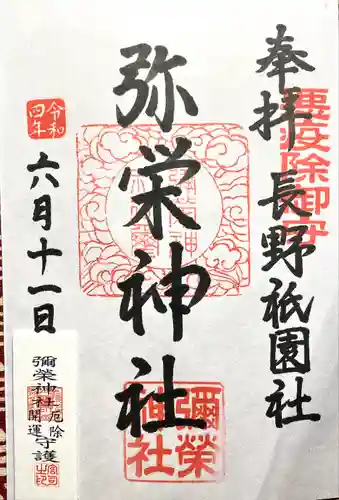 奉拝 長野祇園社
悪疫除御守
弥栄神社
彌榮神社
令和四年
六月十一日
彌榮神社守護
厄除
開運